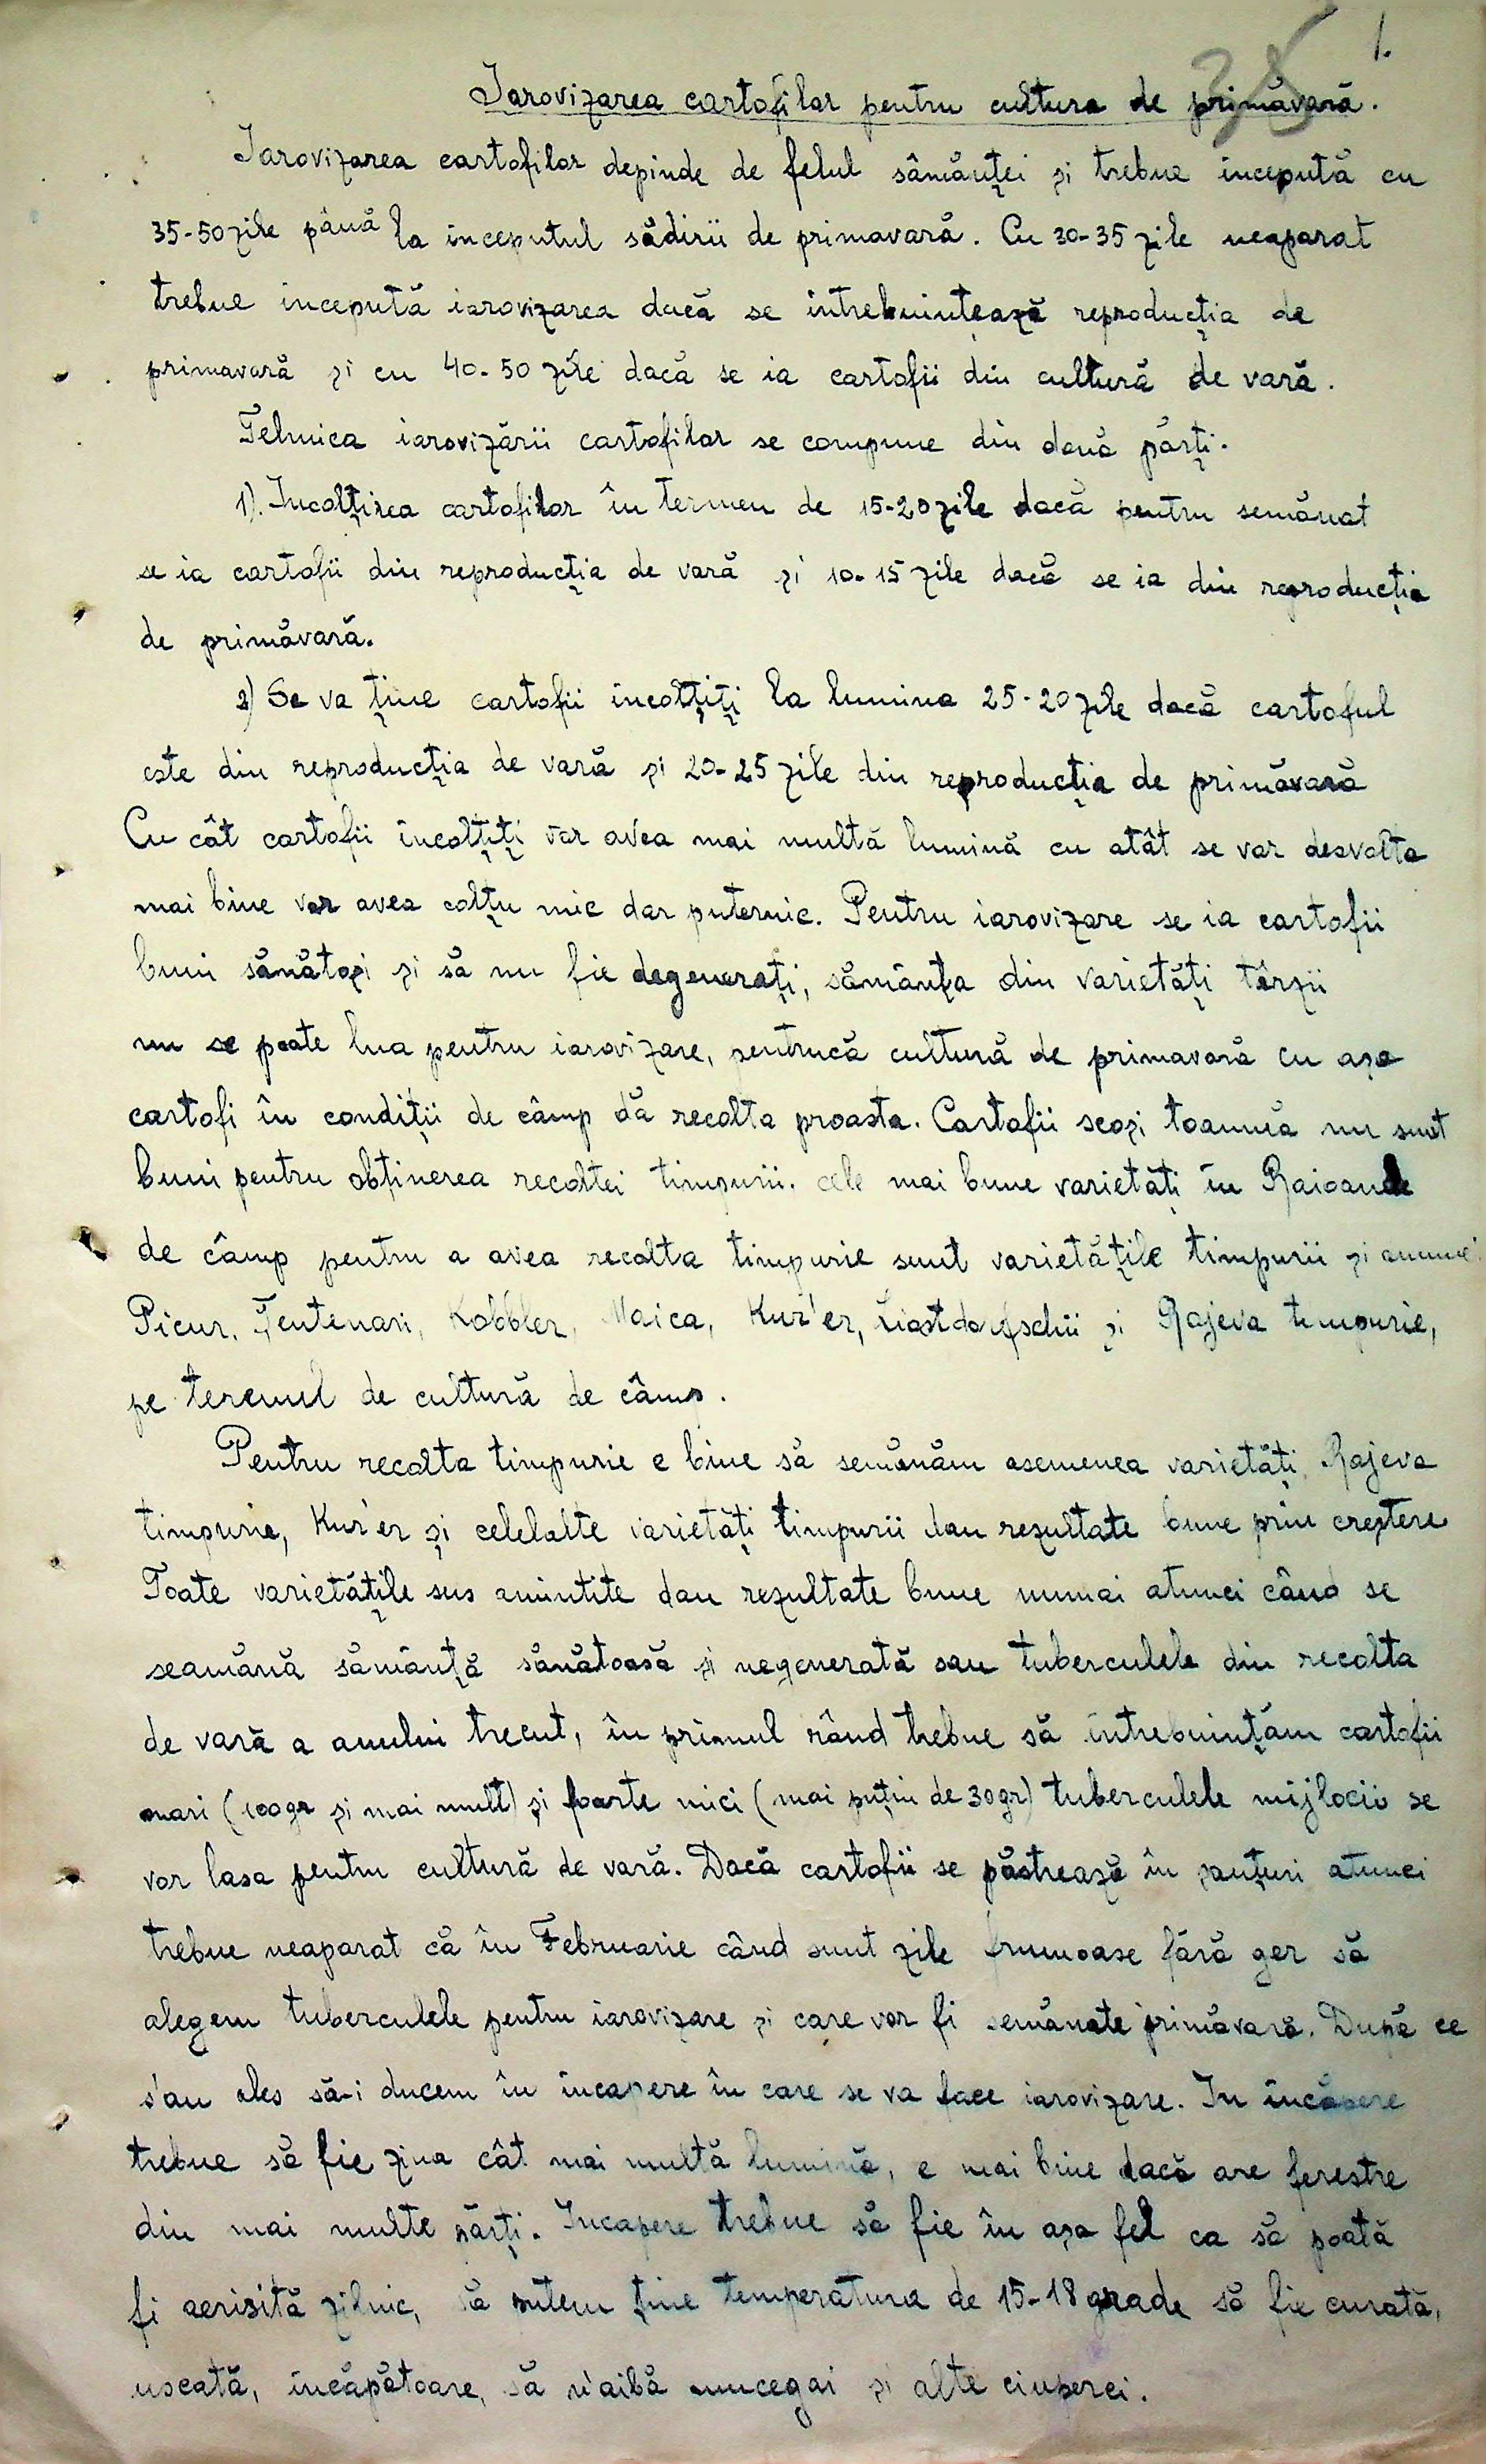 1.
38
Iarovizarea cartofilor pentru cultura de primăvară.
Iarovizarea cartofilor depinde de felul sămănţei şi trebue începută cu
35-50 zile până la inceputul sădirii de primavară. Cu 30-35 zile neaparat
trebue incepută iarovizarea dacă se intrebuinţează reproducţia de
primavară şi cu 40-50 zile dacă se ia cartofii din cultură de vară.
Tehnica iarovizării cartofilor se compune din două părţi.
1). Incolţirea cartofilor în termen de 15-20 zile dacă pentru semănat
se ia cartofii din reproducţia de vară şi 10-15 zile dacă se ia din reproducţia
de primăvară.
2) Se va ţine cartofii incolţiţi la lumina 25-20 zile dacă cartoful
este din reproducţia de vară şi 20-25 zile din reproducţia de primăvară
Cu cât cartofii incolţiţi vor avea mai multă lumină cu atât se vor desvolta
mai bine vor avea colţu mic dar puternic. Pentru iarovizare se ia cartofii
buni sănătoşi şi să nu fie degeneraţi, sămânţa din varietăţi târzii
nu se poate lua pentru iarovizare, pentrucă cultură de primavară cu aşa
cartofi în condiţii de câmp dă recolta proasta. Cartofii scoşi toamnă nu sunt
buni pentru obţinerea recoltei timpurii. cele mai bune varietăţi în Raioanele
de câmp pentru a avea recolta timpurie sunt varietăţile timpurii şi anume:
Picur, Ţentenari, Kobbler, Maica, Kur'er, Liastdorfschii şi Rajeva timpurie,
pe terenul de cultură de câmp.
Pentru recolta timpurie e bine să semănăm asemenea varietăţi, Rajeva
timpurie, Kur'er şi celelalte varietăţi timpurii dau rezultate bune prin creştere
Toate varietăţile sus amintite dau rezultate bune numai atunci când se
seamănă sămânţă sănătoasă şi negenerată sau tuberculele din recolta
de vară a anului trecut, în primul rând trebue să intrebuinţăm cartofii
mari (100gr şi mai mult) şi foarte mici (mai puţin de 30gr) tuberculele mijlocii se
vor lasa pentru cultură de vară. Dacă cartofii se păstrează în şanţuri atunci
trebue neaparat că în Februarie când sunt zile frumoase fără ger să
alegem tuberculele pentru iarovizare şi care vor fi semănate primăvară. După ce
s'au ales să-i ducem în incapere în care se va face iarovizare. In încăpere
trebue să fie ziua cât mai multă lumină, e mai bine dacă are ferestre
din mai multe părţi. Incapere trebue să fie în aşa fel ca să poată
fi aerisită zilnic, să putem ţine temperatura de 15-18 grade să fie curată,
uscată, incăpătoare, să n'aibă mucegai şi alte ciuperci.